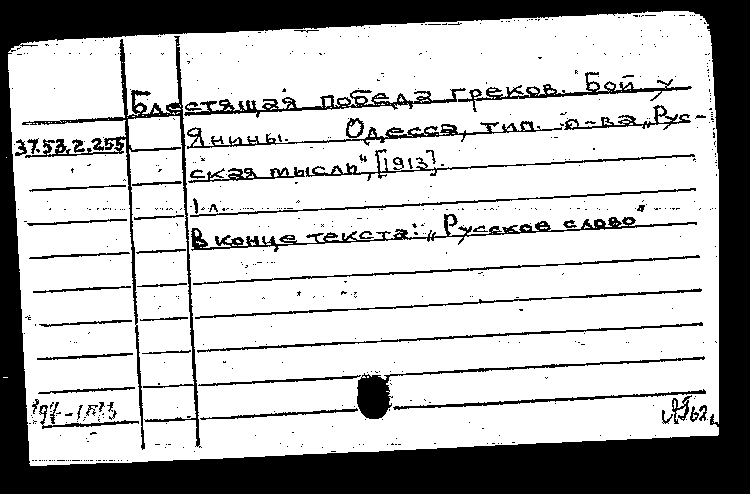 Блестящая победа греков. Бой у
37.53.2.255 Янины. Одесса, тип. о-ва „Рус-
ская мысль", [1913].
1 л.
В конце текста: „Русское слово"